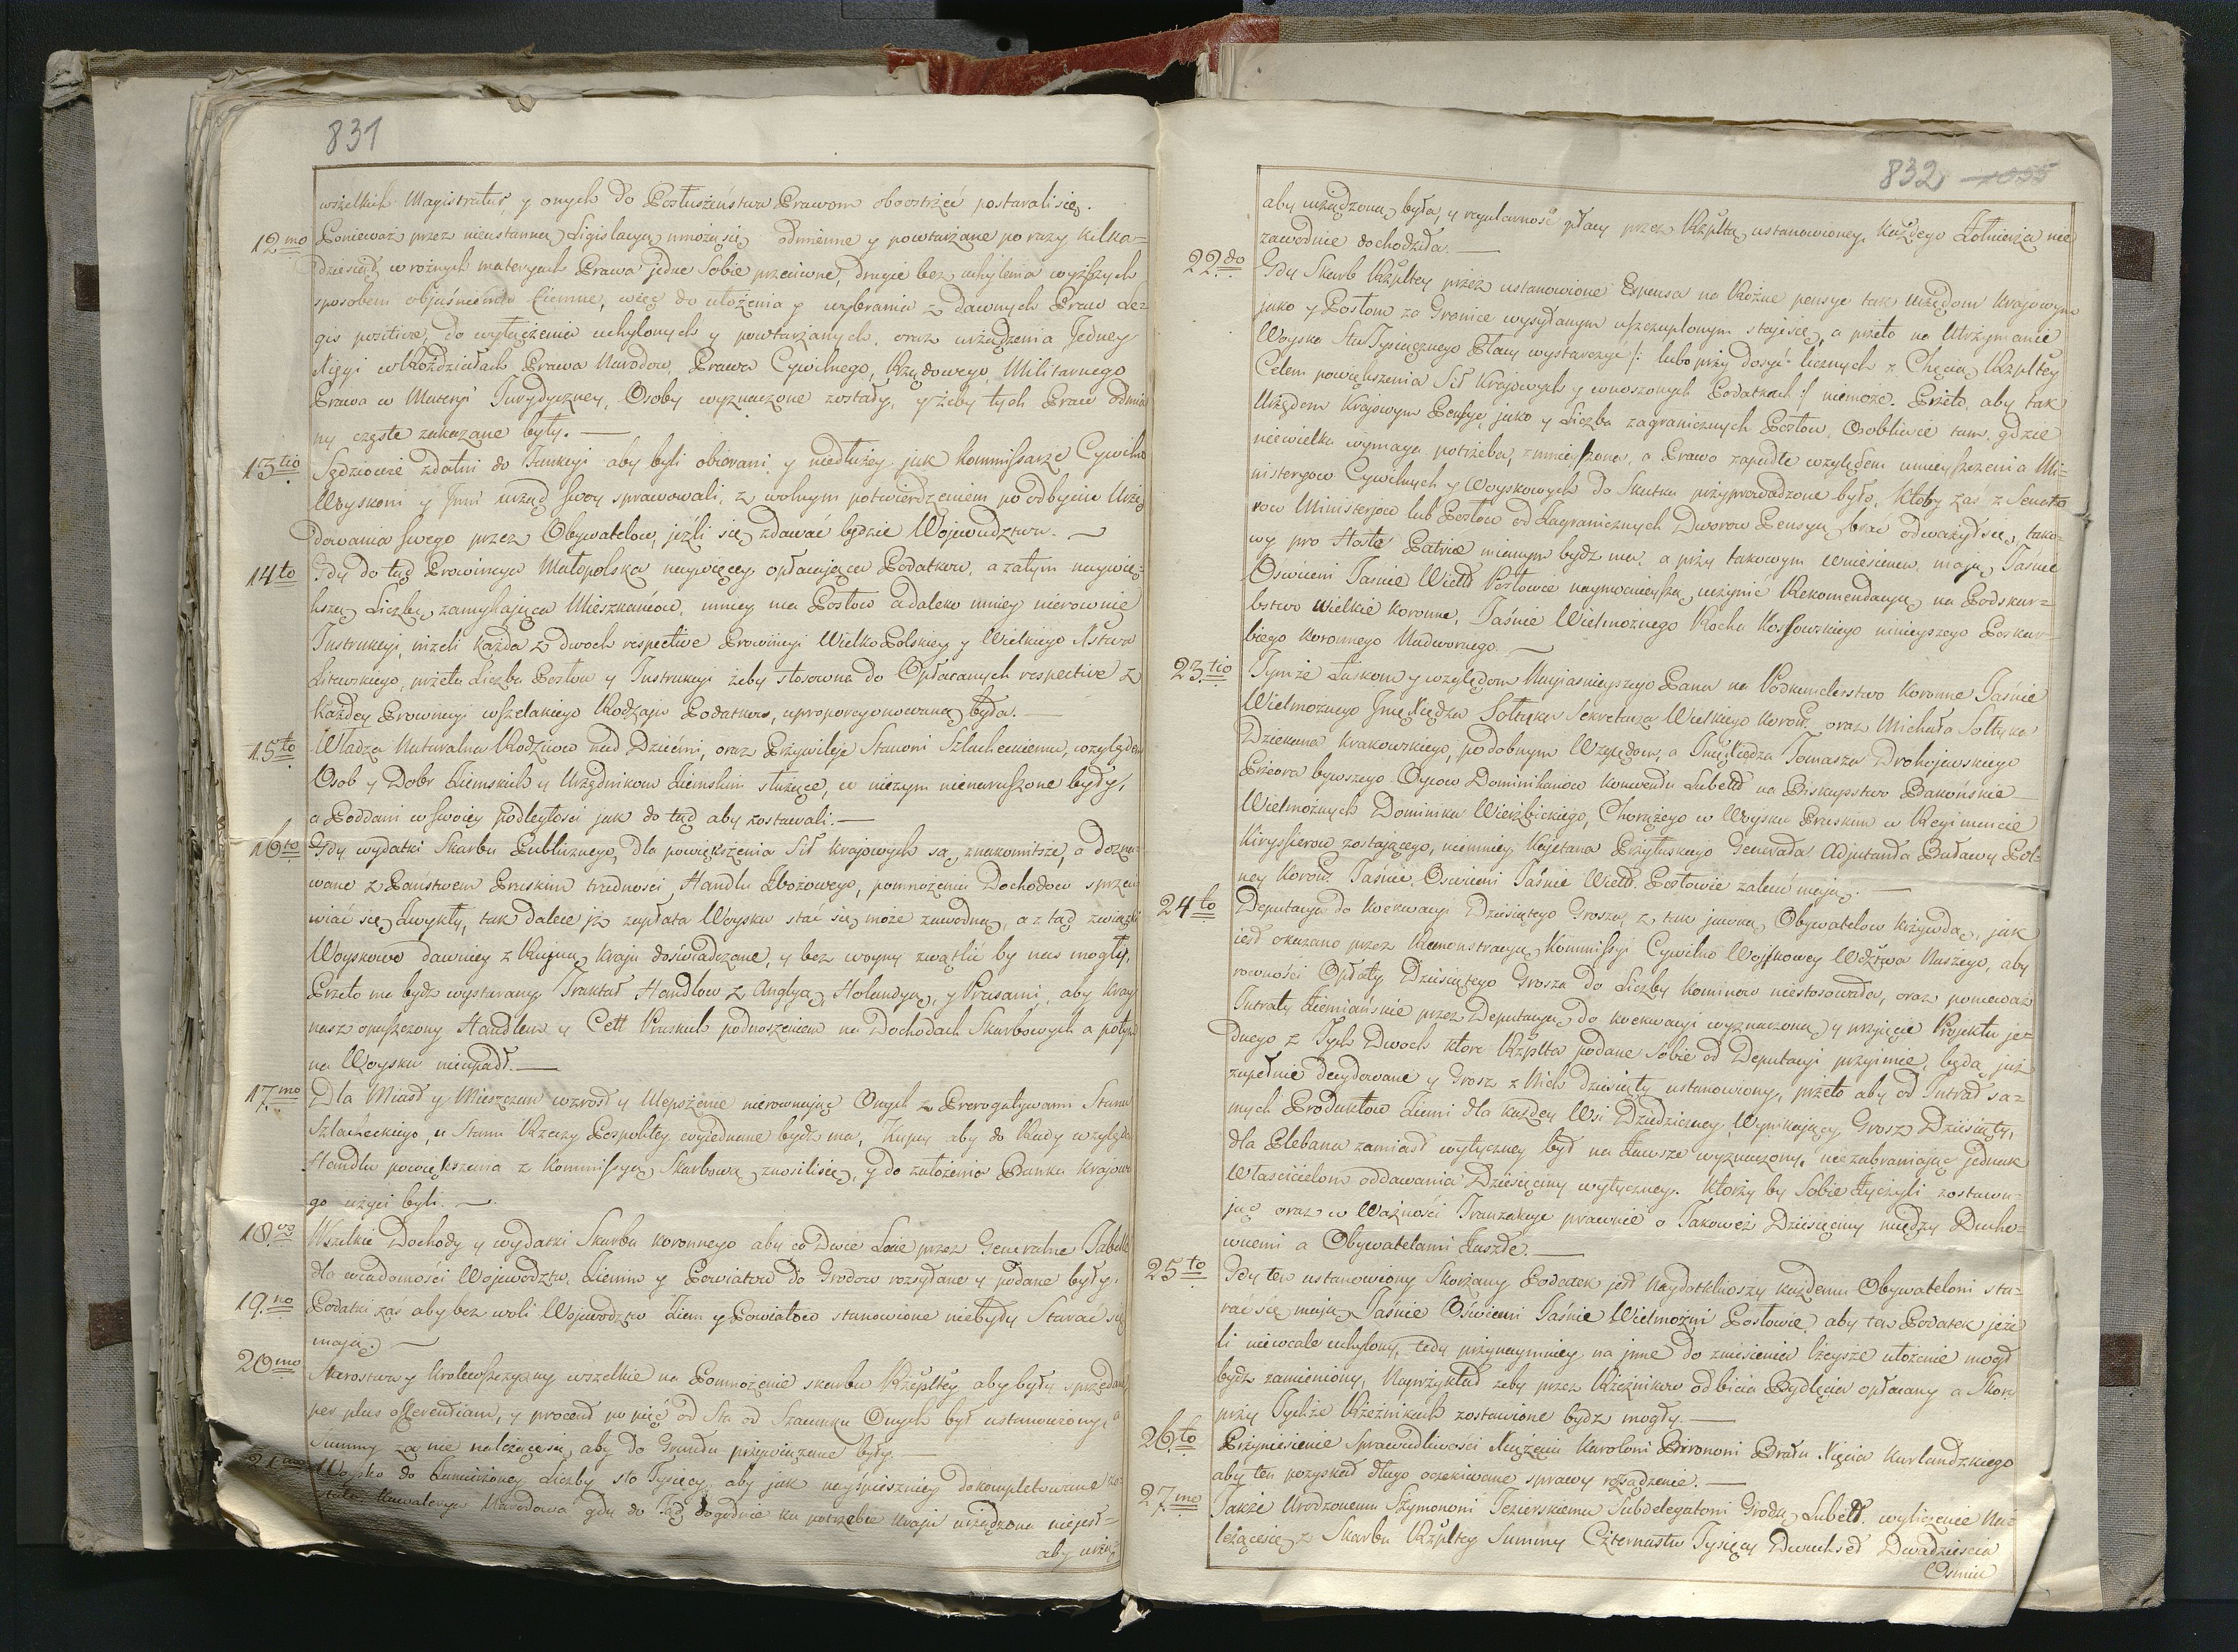 831
wszelkich Magistratur, y onych do Posłuszeństwa Prawom obostrzać postarali się.
12mo Ponieważ przez nieustanną Ligislacyą mnożą się odmienne y powtarzane po razy kilka=
dziesiąt w rożnych materyach Prawa jedne Sobie przeciwne, drugie bez uchylenia wyższych
sposobem objaśnienia Ciemne, więc do ułożenia y wybrania z dawnych Praw Le=
gis positivæ, do wyłączenia uchylonych y powtarzanych, oraz urządzenia Jedney
Xięgi w Rozdziałach Prawa Narodow, Prawa Cywilnego, Rządowego, Militarnego
Prawa w Materyi Jurydyczney, Osoby wyznaczone zostały, y żeby tych Praw odmia
ny częste zakazane były. —
13tio Sędziowie zdatni do Funkcyi aby byli obierani y niedłużey jak Kommissarze Cywilno
Woyskowi y Jnni urząd swoy sprawowali, z wolnym potwierdzeniem po odbyciu Urzę
dowania swego przez Obywatelow, jeżli się zdawać będzie Wojewodztwu. —
14to Gdy do tąd Prowincya Małopolska naywięcey opłacająca Podatkow, a zatym naywię=
kszą Liczbę zamykająca Mieszkańcow, mniey ma Posłow a daleko mniey nierownie
Instrukcyi, niżeli każda z dwoch respective Prowincyi Wielko Polskiey y Wielkiego Xstwa
Litewskiego, przeto Liczba Posłow y Instrukcyi żeby stosowna do Opłacanych respective z
Każdey Prowincyi wszelakiego Rodzaju Podatkow, uproporcyonowana była. —
15to Władza Naturalna Rodzicow nad Dziećmi, oraz Przywileje Stanowi Szlacheckiemu, względem
Osob y Dobr Ziemskich y Urzędnikow Ziemskim służące, w niczym nienaruszone były,
a Poddani w swoiey podległosci jak do tąd aby zostawali. —
16to Gdy wydatki Skarbu Publicznego, dla powiększenia Sił krajowych są znakomitsze, a dozna=
wane z Państwem Pruskim trudnosci Handlu Zbożowego, pomnożeniu Dochodow sprzeci
wiać się zwykły, tak dalece iż zapłata Woysku stać się może zawodną, a z tąd związki
Woyskowe dawniey z Ruyną Kraju doświadczane, y bez woyny zwątlić by nas mogły.
Przeto ma bydz wystarany Traktat Handlow z Anglyą, Holandyą, y Prusami, aby Kray
nasz opuszczony Handlem y Cełł Pruskich podnoszeniem na Dochodach Skarbowych a potym
na Woysku nieupadł. —
17mo Dla Miast y Mieszczan wzrost y Ulepszenie nierownając Onych z Prerogatywami Stanu
Szlacheckiego, u Stanu Rzeczy Pospolitey wyiednane bydz ma, Kupcy aby do Rady względem
Handlu powiększenia z Kommissyą Skarbową znosili się, y do założenia Banku Krajowe
go użyci byli. —
18vo Wszelkie Dochody y wydatki Skarbu koronnego aby co Dwie Lecie przez Generalne Tabelle
dla wiadomości Wojewodztw Ziemm y Powiatow do Grodow rozsyłane y podane były.
19no Podatki zaś aby bez woli Wojewodztw Ziem y Powiatow stanowione niebyły Starać się
mają. —
20mo Starostwa y Krolewszczyzny wszelkie na Pomnożenie skarbu Rzeplltey aby były sprzedane
per plus offerentiam, y procent po pięć od Sta od Szacunku Onych był ustanowiony, a
Summy zaś nie należące się, aby do Gruntu przywiązane były.
21mo Woysko do Zamierzoney Liczby sto Tysięcy, aby jak nayśpieszniey dokompletowane zo
stało. Kawalerya Narodowa gdy do Tąd dogodnie ku potrzebie Kraju urządzona niejest=
aby urzą

832 1055
aby urządzoną była, y regularność płacy przez Rzpltą ustanowioney, każdego Żołnierza nie
zawodnie dochodziła. —
22do Gdy Skarb Rzpltey przez ustanowione Expensa na Rożne pensye tak Urzędom Krajowym
jako y Posłom za Granice wysyłanym uszczuplonym staje się, a przeto na Utrzymanie
Woyska Sta Tysiącznego Płacy wystarczyć /: lubo przy dosyć licznych z Chęcią Rzpltey
Celem powiększenia Sił Krajowych y wnoszonych Podatkach :/ niemoże. Przeto, aby tak
Urzędom Krajowym Pensye, jako y Liczba zagranicznych Posłow, Osobliwie tam, gdzie
niewielka wymaga potrzeba, zmnieyszona, a Prawo zapadłe względem umnieyszenia Mi=
nistrow Cywilnych y Woyskowych do Skutku przyprowadzone było. Ktoby zaś z Senato
row Ministrow lub Posłow od Zagranicznych Dworow Pensyą brać odważył się, tako=
wy pro Hoste Patriæ mianym bydz ma, a przy takowym wniesieniu, mają Jaśnie
Oświeceni Jasnie Wielł Posłowie naymocnieyszą uczynić Rekomendacyą na Podskar=
bstwo Wielkie koronne, Jaśnie Wielmożnego Rocha Kossowskiego ninieyszego Poskar
biego Koronnego Nadwornego. —
23tio Tymże Łaskom y względom Nayjasnieyszego Pana na Podkanclerstwo Koronne Jaśnie
Wielmożnego Jmę Xiędza Sołtyka Sekretarza Wielkiego Koronł, oraz Michała Sołtyka
Dziekana Krakowskiego, podobnym Względom, a Jmę Xiędza Tomasza Drohojewskiego
Przeora bywszego Oycow Dominikanow konwentu Lubelł na Biskupstwo Bakońskie
Wielmożnych Dominika Wierzbickiego, Chorążego w Woysku Pruskim w Regimencie
Kirysierow zostającego, niemniey Kajetana Przyłuskiego Generała Adjutanta Buławy Pol=
ney Koronł Jaśnie Oswieceni Jaśnie Wielł. Posłowie zalecić mają. —
24to Deputacya do Koekwacyi Dziesiątego Grosza, z tak jawną Obywatelow krzywdą, jak
iest okazano przez Remonstracyą Kommissyi Cywilno Woyskowey Wdztwa Naszego, aby
rowności Opłaty Dziesiątego Grosza do Liczby Kominow niestosowała, oraz ponieważ
Intraty Ziemiańskie przez Deputacyą do koekwacyi wyznaczoną y przyjęcie Projektu je=
dnego z Tych Dwoch ktore Rzplta podane Sobie od Deputacyi przyimie, będą już
zupełnie decydowane y Grosz z Nich dziesięty ustanowiony, przeto aby od Intrat sa=
mych Produktow Ziemi dla każdey Wsi Dziedziczney, Wynikający Grosz Dziesiąty,
dla Plebana zamiast wytyczney był na Zawsze wyznaczony, niezabraniając jednak
Właścicielom oddawania Dziesięciny wytyczney. Ktorzy by Sobie Życzyli zostawu=
jąc oraz w Ważności Tranzakcye prawnie o Takoweż Dziesięciny między Ducho=
wnemi a Obywatelami Zaszłe. —
25to Gdy ten ustanowiony Skorzany Podatek jest Naydotkliwszy każdemu Obywatelowi sta=
rać się mają Jaśnie Oświeceni Jaśnie Wielmożni Posłowie, aby ten Podatek jeże
li niewcale uchylony, tedy przynaymniey na jnne do zniesienia lżeysze ułożenie mogł
bydz zamieniony, Naprzykład żeby przez Rzeźnikow od bicia Bydlęcia opłacany a Skor
przy Tychże Rzeźnikach zostawione bydz mogły. —
26to Przyniesienie Sprawiedliwości Xiążęciu Karolowi Bironowi Bratu Xięcia Kurlandzkiego
aby ten pozyskał długo oczekiwane sprawy rozsądzenie. —
27mo Także Urodzonemu Szymonowi Jezierskiemu Subdelegatowi Grodz Lubelł. wyliczenie Na=
leżącey się z Skarbu Rzpltey Summy Czternastu Tysięcy Dwuchset Dwadzieścia
Osmiu